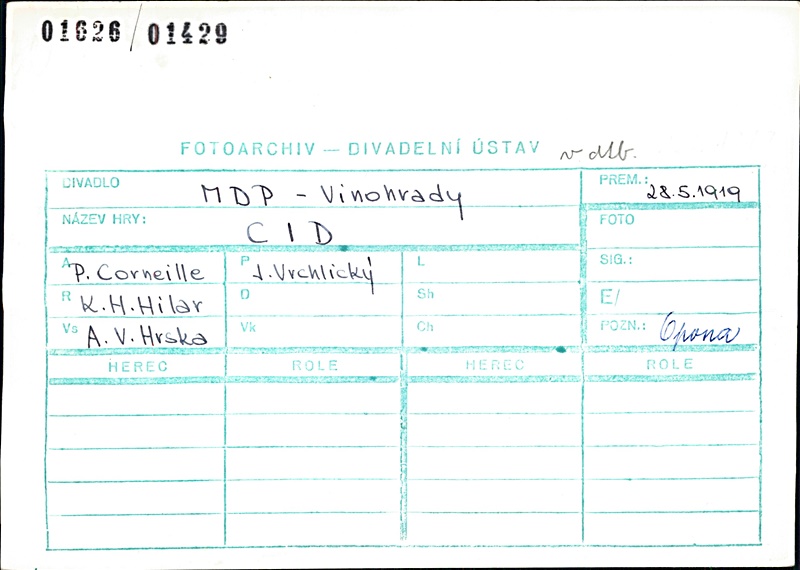 01626 / 01429
FOTOARCHIV — DIVADELNÍ ÚSTAV v dlb.
DIVADLO MDP - Vinohrady PREM.: 28.5.1919
NÁZEV HRY: CID FOTO
A P. Corneille P J. Vrchlický L SIG.:
R K. H. Hilar D Sh E/
Vs A. V. Hrska Vk Ch POZN.: Opona
HEREC ROLE HEREC ROLE